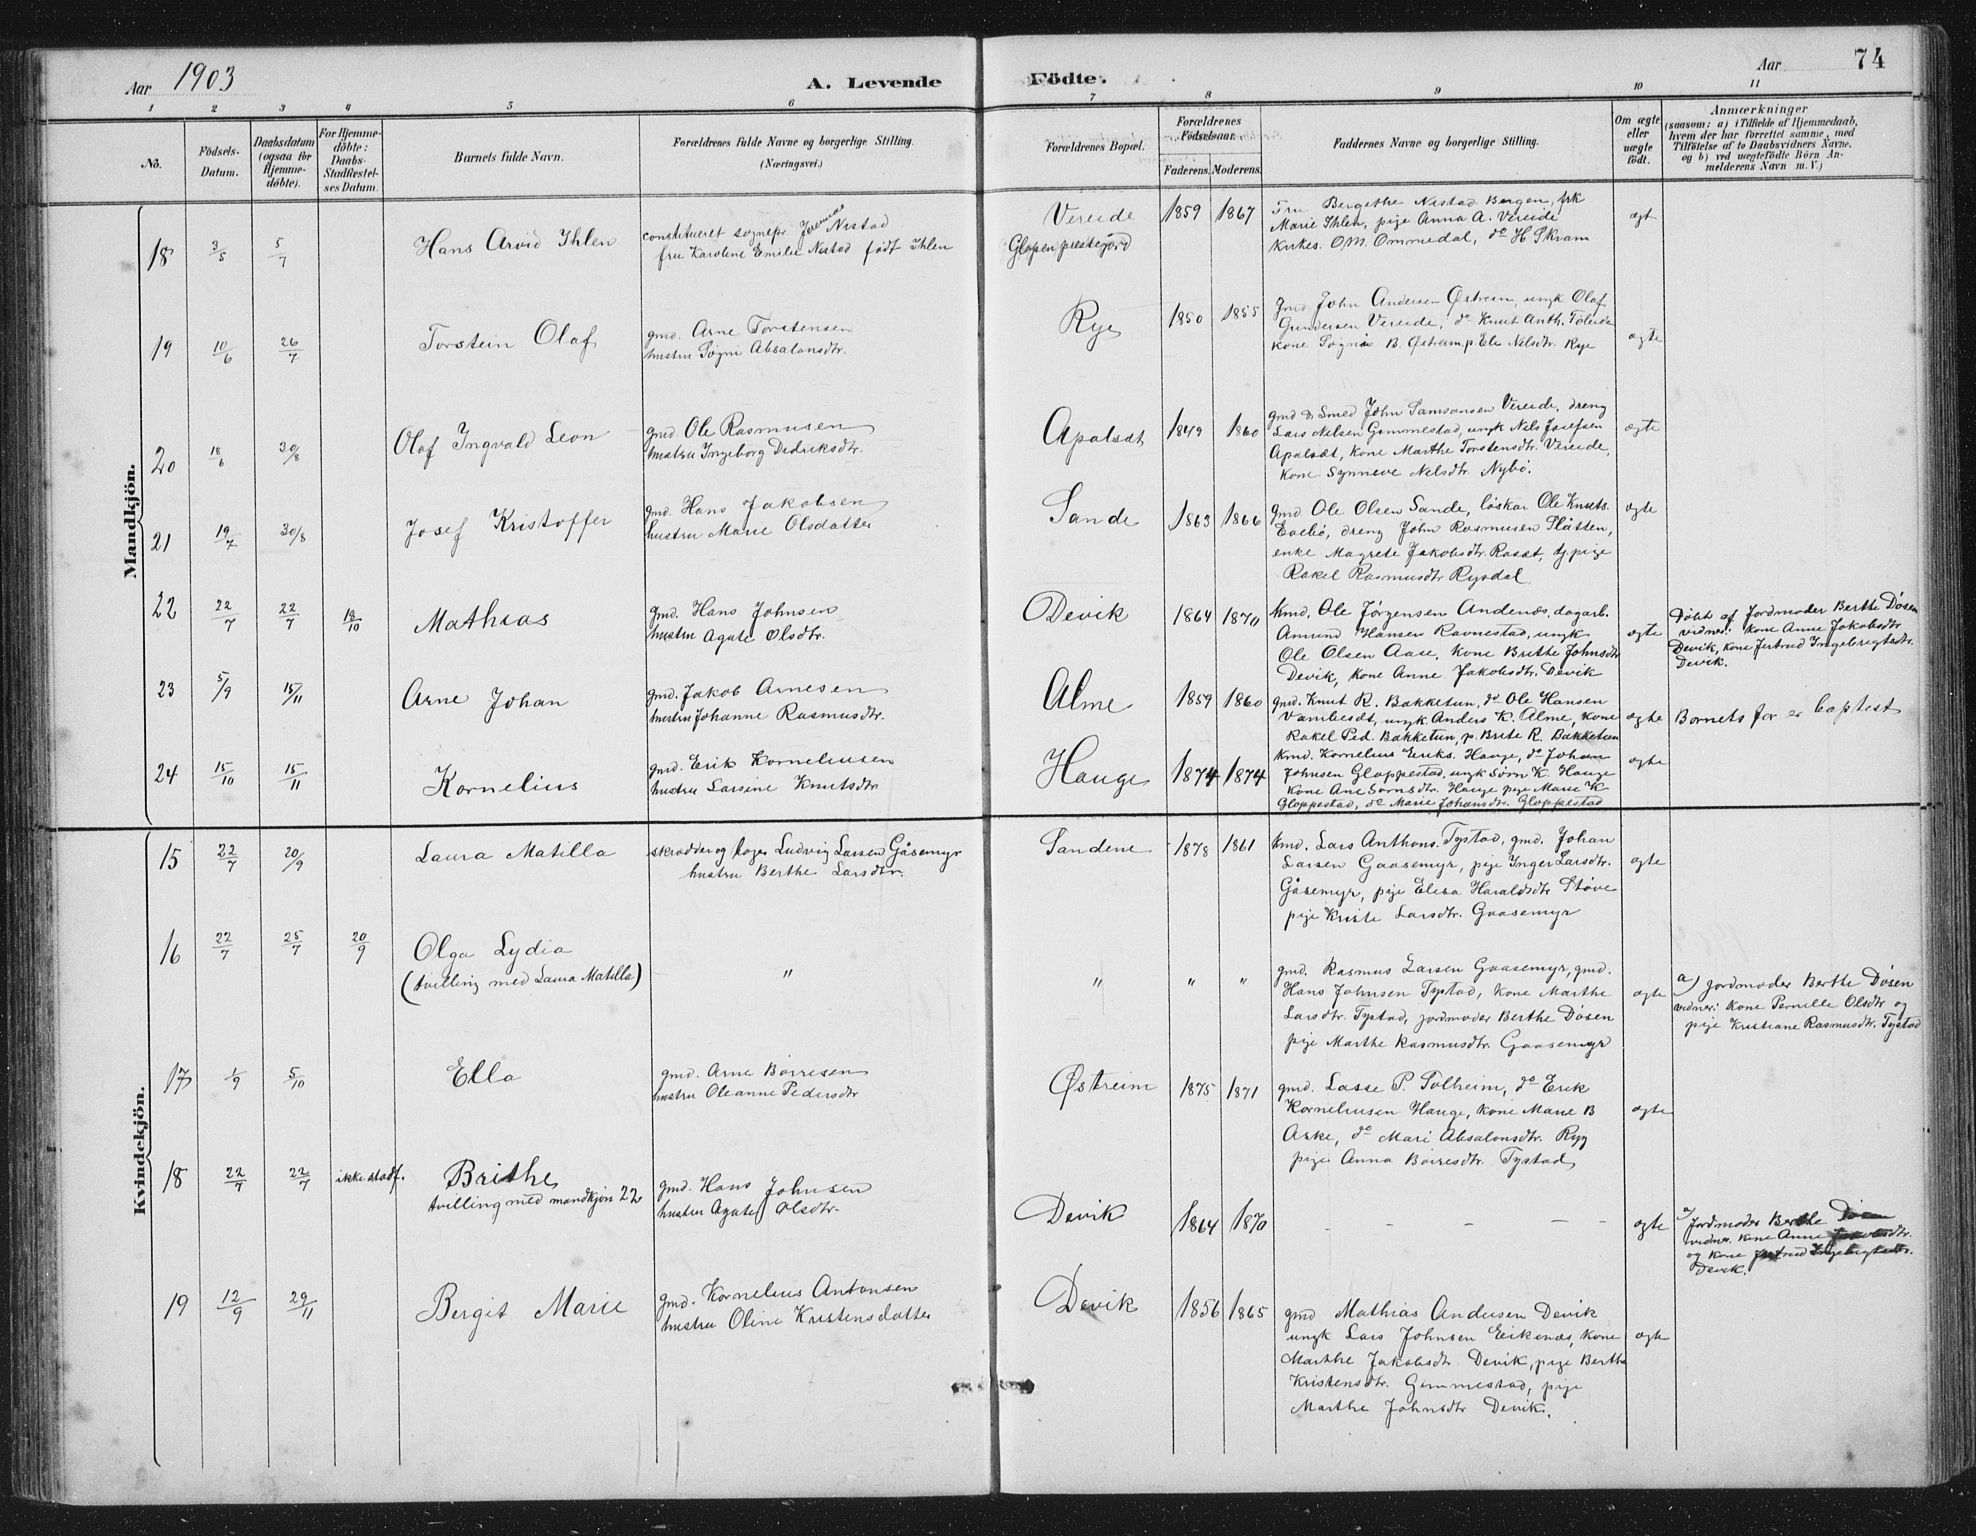 Aar 1903
A. Levende Födte.
Aar 74
1 2 3 4 5 6 7 8 9 10 11
No.
Födsels-Datum.
Daabsdatum (ogsaa for Hjemme-döbte).
For Hjemme-döbte: Daabs-Stadfæstel-ses Datum.
Barnets fulde Navn.
Forældrenes fulde Navne og borgerlige Stilling.
(Næringsvei.)
Forældrenes Bopæl.
Forældrenes Födselsaar.
Faderens. Moderens.
Faddernes Navne og borgerlige Stilling.
Om ægte eller uægte födt.
Anmærkninger
(saasom: a) i Tilfælde af Hjemmedaab,
hvem der har forrettet samme, med
Tilföielse af to Daabsvidners Navne.
og b) ved uægtefödte Börn An-
melderens Navn m. V.)
Mandkjön.
18 3/5 5/7 Hans Arvid Ihlen
constitueret sognepr. Jeremias Nestad
fru Karoline Emilie Nestad født Ihlen
Vereide
Glopen prestegjord
1859 1867
Fru Bergithe Nestad Bergen, frk
Marie Ihlen, pige Anna A. Vereide
Kirkes. O.M. Ommedal, do H Skram
ægt
19 10/6 26/7 Torstein Olaf
gmd. Arne Torstensen
hustru Sogni Absalonsdtr.
Rye
1850 1855
gmd John Andersen Østreim, ungk Olaf
Gundersen Vereide, do Knut Anth. Toleide
kone Sogna B. Østreim, p. Ele Nelsdtr. Rye
ægte
20 18/6 30/8 Olaf Ingvald Leon
gmd. Ole Rasmusen
hustru Ingeborg Didriksdtr.
Apalsdt
1849 1860
gmd & Smed John Samsonsen Vereide, dreng
Lars Nelsen Gimmestad, ungk Nels Josefsen
Apalsæt, kone Marthe Torstensdtr. Vereide,
kone Synneve Nelsdtr. Nybø.
ægte
21 19/7 30/8 Josef Kristoffer
gmd. Hans Jakobsen
hustru Marie Olsdatter
Sande
1863 1866
gmd Ole Olsen Sande, løskar Ole Knuts.
Evebø, dreng John Rasmusen Slåtten,
enke Magrete Jakobsdtr. Rasæt, tj. pige
Rakel Rasmusdtr Rysdal
ægte
22 22/7 22/7 18/10 Mathias
gmd. Hans Johnsen
hustru Agate Olsdtr.
Devik
1864 1870
kmd. Ole Jørgensen Andenæs, dagarb.
Amund Hansen Ravnestad, ungk
Ole Olsen Aase, kone Brithe Johnsdtr
Devik, kone Anne Jakobsdtr. Devik
ægte
Døbt af Jordmoder Berthe Døsen
vidner: kone Anne Jakobsdtr
Devik, kone Jertrud Ingebregtsdtr.
Devik.
23 5/9 15/11 Arne Johan
gmd. Jakob Arnesen
hustru Johanne Rasmusdtr.
Alme
1859 1860
gmd. Knut R. Bakketun, do Ole Hansen
Vambesæt, ungk Anders K. Alme, kone
Rakel Ped. Bakketun, p. Brite R. Bakketun
ægte
Bornets far er baptest
24 15/10 15/11 Kornelius
gmd. Erik Korneliusen
hustru Larsine Knutsdtr
Hauge
1874 1874
kmd. Kornelius Eriks. Hauge, do Johan
Johnsen Gloppestad, ungk Sørn K. Hauge
kone Ane Sørnsdtr. Hauge pige Marie K
Gloppestad, do Marie Johansdtr. Gloppestad
ægte
Kvindekjön.
15 22/7 20/9 Laura Matilla
skrædder og bager Ludvig Larsen Gåsemyr
hustru Berthe Larsdtr.
Sandene
1878 1861
kmd. Lars Anthons. Tystad, gmd. Johan
Larsen Gaasemyr, pige Inger Larsdtr.
Gåsemyr, pige Elisa Haraldsdtr Støve
pige Kriste Larsdtr. Gaasemyr
ægte
16 22/7 25/7 20/9 Olga Lydia
(tvilling med Laura Matilla)
" " " "
gmd. Rasmus Larsen Gaasemyr, gmd.
Hans Johnsen Tystad, kone Marthe
Larsdtr. Tystad, jordmoder Berthe Døsen
pige Marthe Rasmusdtr. Gaasemyr
ægte
a) Jordmoder Berthe Døsen
vidner: kone Pernille Olsdtr og
pige Kristiane Rasmusdtr. Tystad
17 1/9 5/10 Ella
gmd. Arne Børresen
hustru Oleanne Pedersdtr
Østreim
1875 1871
gmd. Lasse P. Solheim, do Erik
Korneliusen Hauge, kone Marie B
Aske, do Mari Absalonsdtr. Ryg
pige Anna Børresdtr. Tystad
ægte
18 22/7 22/7 ikke stadf. Brithe
tvilling med mandkjøn 22
gmd. Hans Johnsen
hustru Agate Olsdtr.
Devik
1864 1870
– – – – –
ægte
a) Jordmoder Berthe Døsen
vidner. kone Anne Jakobsdtr.
og kone Jertrud Ingebregtsdtr.
Devik.
19 12/9 29/11 Bergit Marie
gmd. Kornelius Antonsen
hustru Oline Kristensdatter
Devik
1856 1865
gmd Mathias Andersen Devik
ungk Lars Johnsen Eikenæs, kone
Marthe Jakobsdtr. Devik, pige Berthe
Kristensdtr. Gimmestad, pige
Marthe Johnsdtr Devik.
ægte